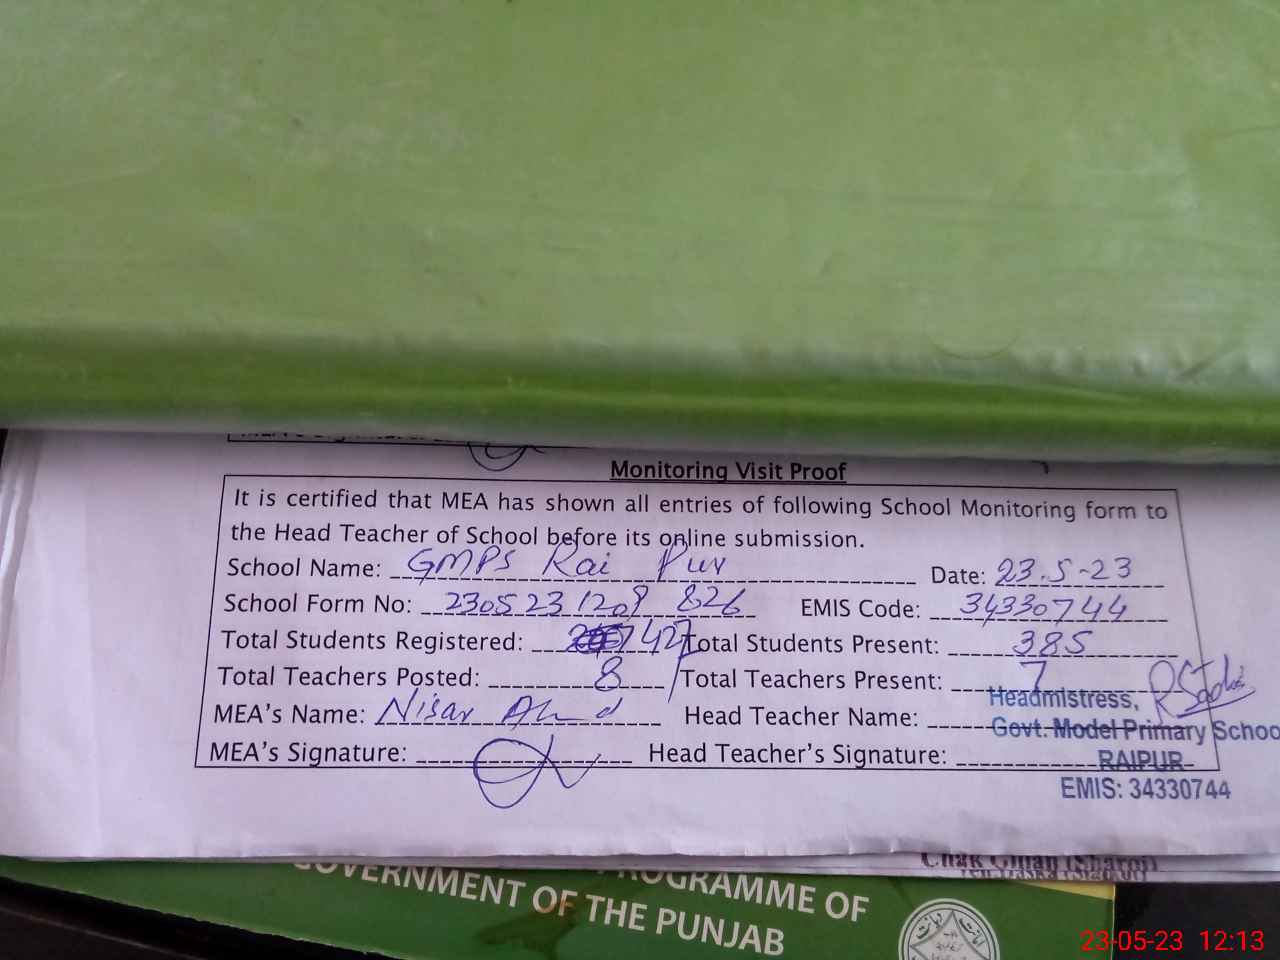 Monitoring Visit Proof
It is certified that MEA has shown all entries of following School Monitoring form to
the Head Teacher of School before its online submission.
School Name: GMPS Rai Pur Date: 23.5-23
School Form No: 230523 1209 826 EMIS Code: 34330744
Total Students Registered: 427 Total Students Present: 385
Total Teachers Posted: 8 Total Teachers Present: 7
MEA's Name: Nisar Ahmd Head Teacher Name:
Headmistress,
Govt. Model Primary School
MEA's Signature: Head Teacher's Signature:
RAIPUR
EMIS: 34330744
PROGRAMME OF
GOVERNMENT OF THE PUNJAB
23-05-23 12:13